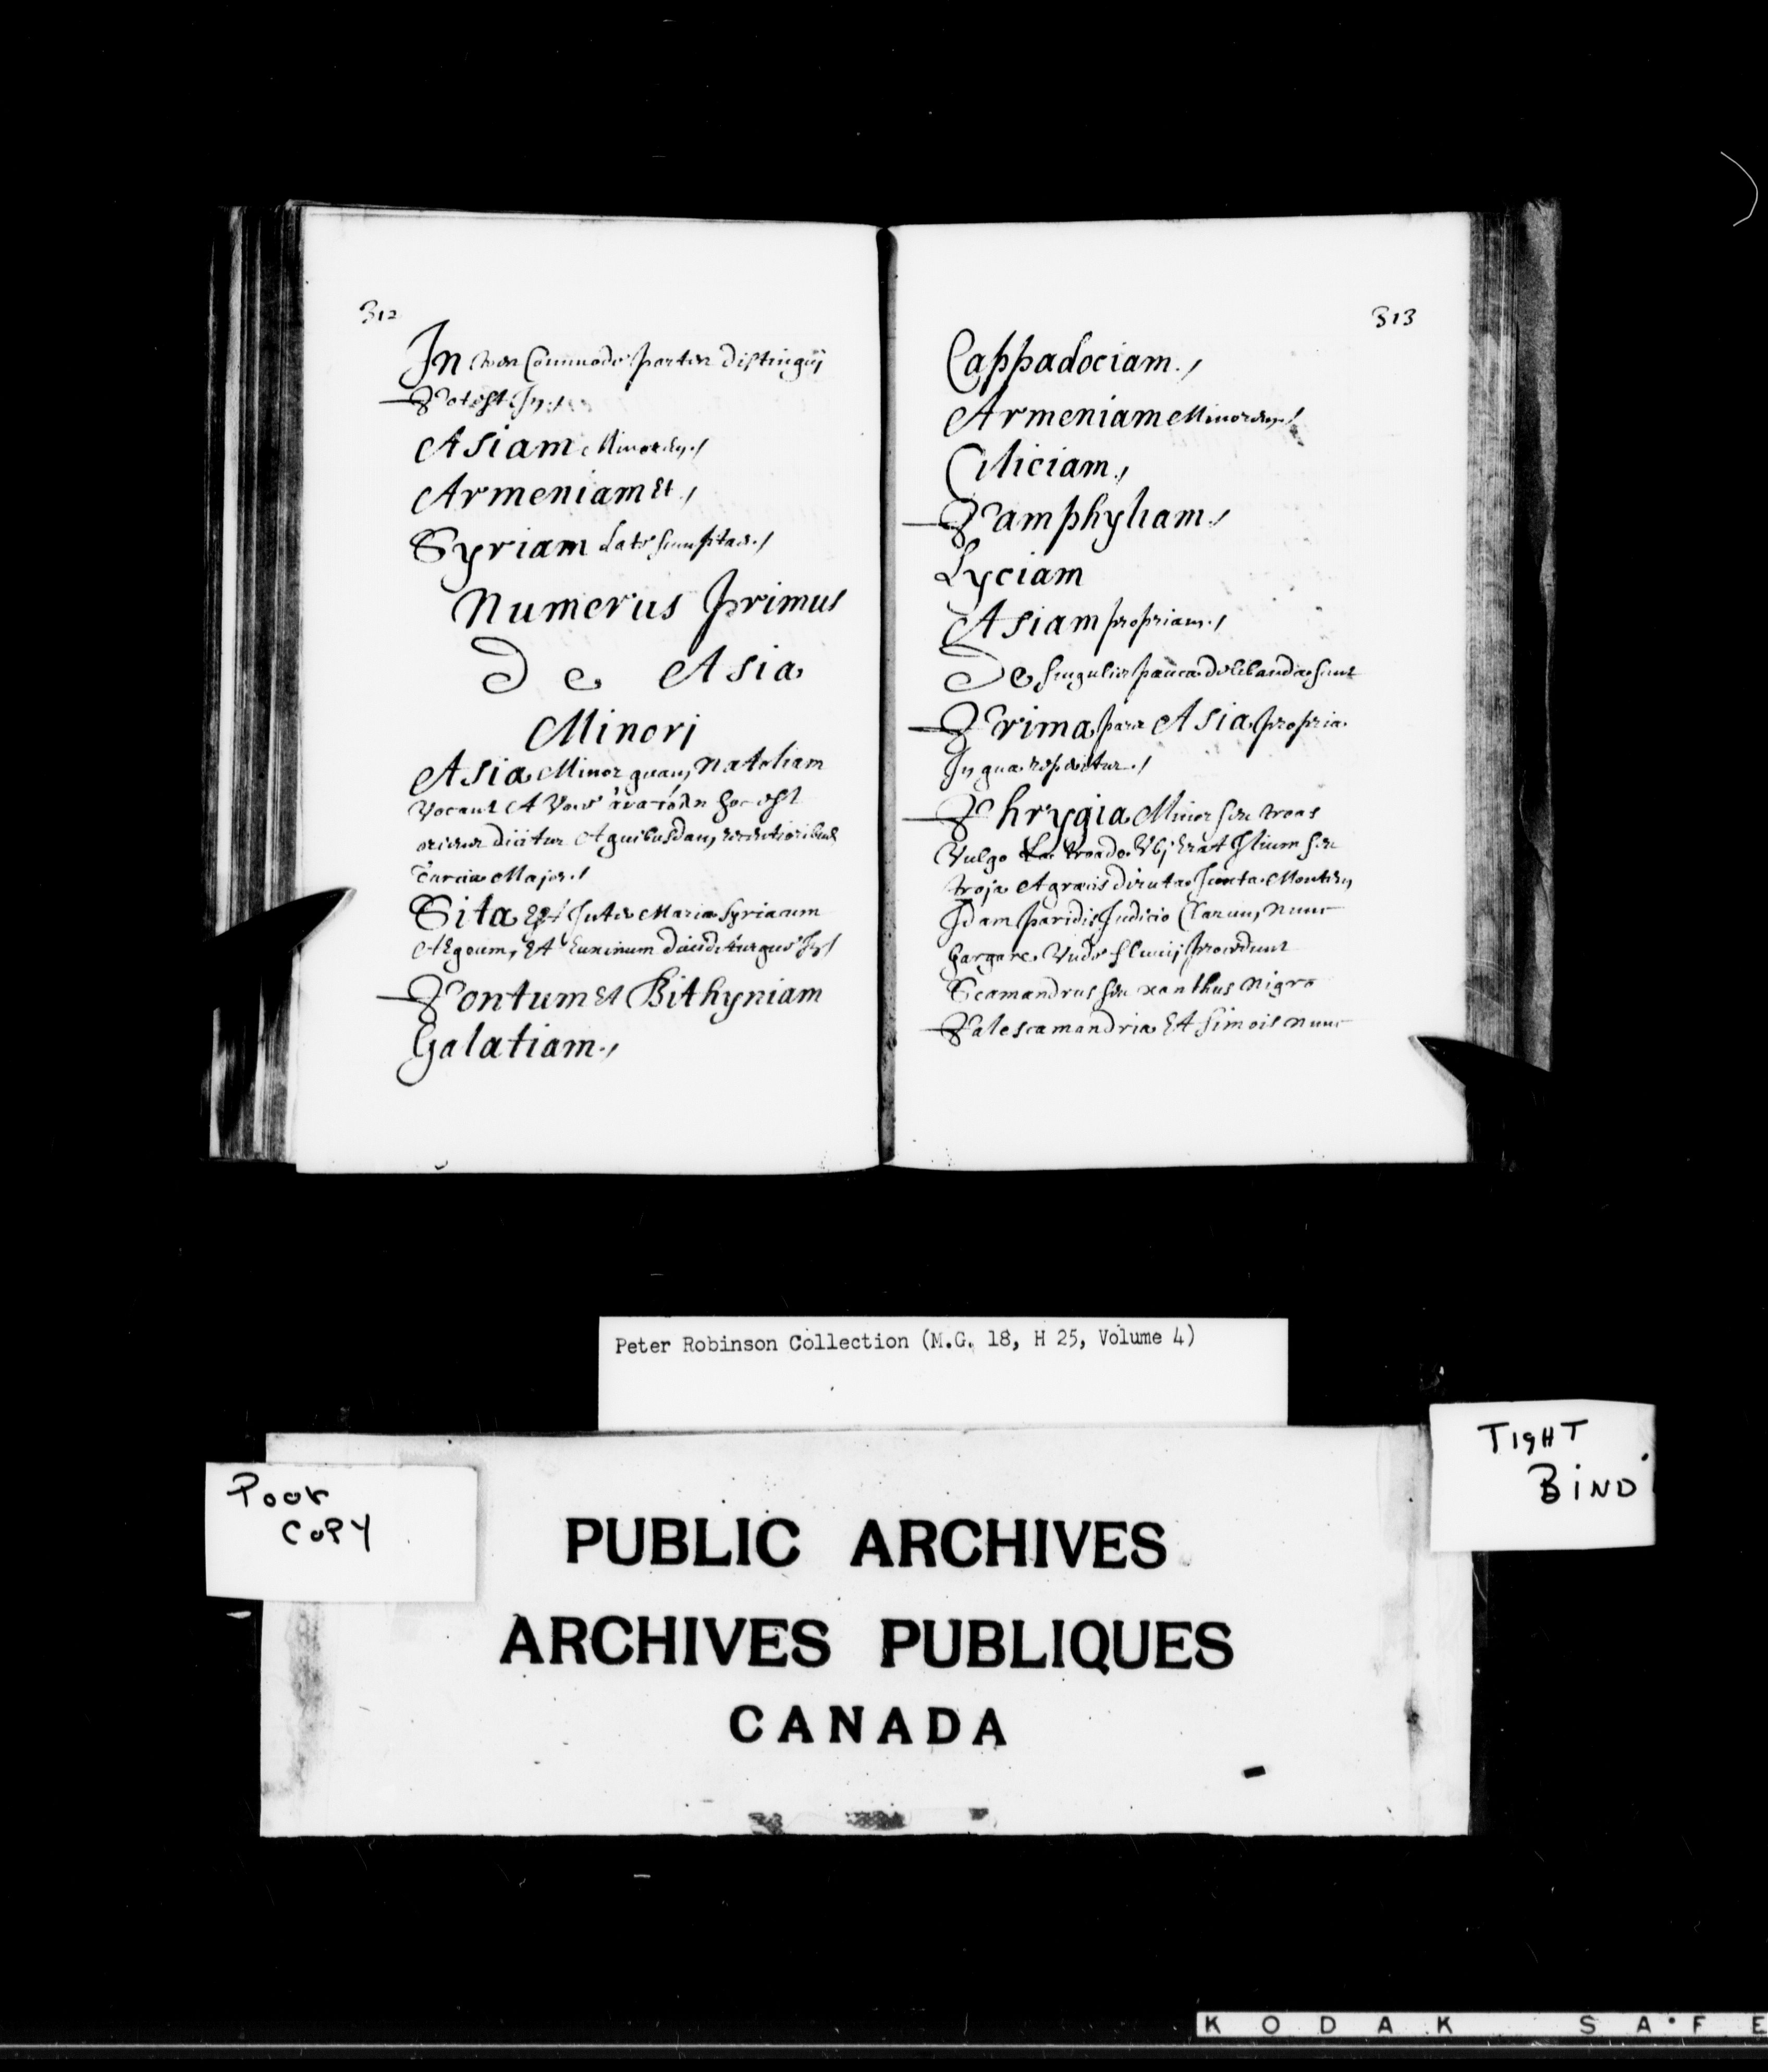 312
In tres Commode partes distinguj
Potest In./
Asiam Minorem./
Armeniam Et./
Syriam Late sumptam./
Numerus Primus
De Asia
Minori
Asia Minor quam Natoliam
Vocant A Voce ἀνατολη hoc est
oriens dicitur A quibusdam recentioribus
Turcia Major./
Sita Est Inter Maria Syriacum
AEgeum, Et Euxinum diuiditurque In/
Pontum Et Bithyniam
Galatiam./
313
Cappadociam./
Armeniam Minorem./
Ciliciam./
Pamphyliam./
Lyciam
Asiam propriam./
De singulis pauca delibanda sunt
Prima pars Asia propria
In qua reperitur./
Phrygia Minor seu troas
Vulgo troade Vbj Erat Ilium seu
troja A græcis diruta Juxta Montem
Idam Paridis Judicio Clarum, Nunc
Gargare Vnde fluuij Procedunt
Scamandrus seu xanthus Nigro
Palescamandria Et Simois nunc
Peter Robinson Collection (M.G. 18, H 25, Volume 4)
Poor
Copy
Tight
Bind
PUBLIC ARCHIVES
ARCHIVES PUBLIQUES
CANADA
KODAK SAFE